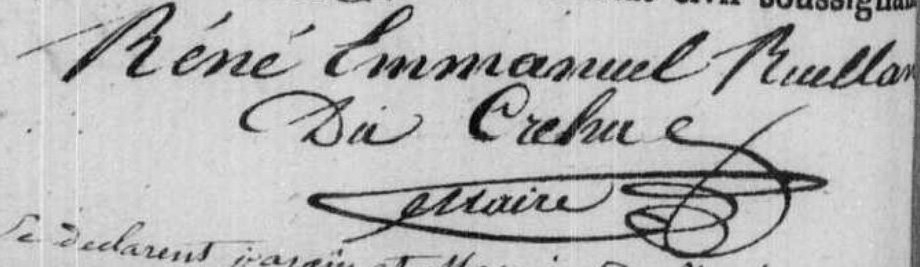 civil soussigna
Réné Emmanuel Ruellan
Du Crehu
Maire
Le declarent